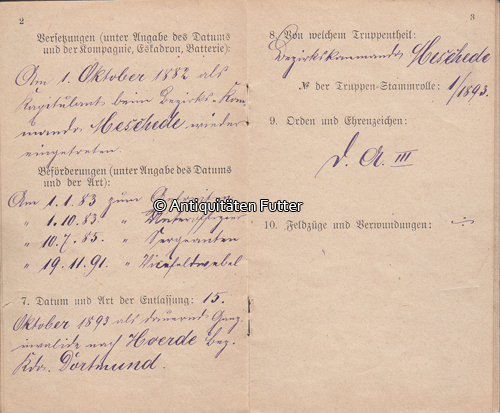 2
Versetzungen (unter Angabe des Datums
und der Kompagnie, Eskadron, Batterie):
Am 1. Oktober 1882 als
Kapitulant beim Bezirks-Kom
mando Meschede wieder
eingetreten.
Beförderungen (unter Angabe des Datums
und der Art):
Am 1.1.83 zum
" 1.10.83 " Unteroffizier
" 10.7.85. " Sergeanten
" 19.11.91. " Vicefeldwebel
7. Datum und Art der Entlassung: 15.
Oktober 1893 als dauernd Ganz
invalide nach Hoerde Bez.
Kdo. Dortmund.
3
8. Von welchem Truppentheil:
Bezirkskommando Meschede
№ der Truppen-Stammrolle: 1/1893.
9. Orden und Ehrenzeichen:
D. A. III
10. Feldzüge und Verwundungen:
© Antiquitäten Futter